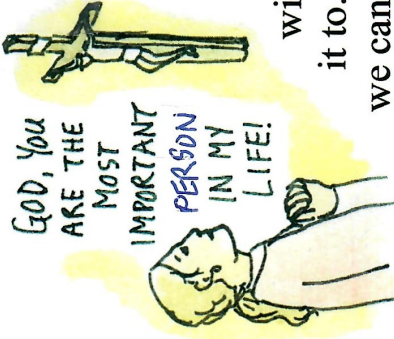 GOD, YOU
ARE THE
MOST
IMPORTANT
PERSON
IN MY
LIFE!
wi
it to.
we can